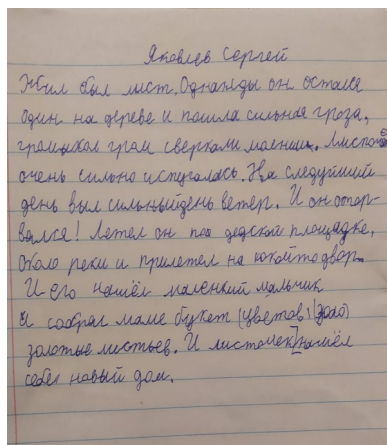 Яковлев Сергей
Жил был лист. Однажды он остался
один на дереве и пошла сильная гроза,
громыхал гром сверкали молнии. Листочек
очень сильно испугалась. На следуйший
день выл сильныйдень ветер. И он отор-
вался! Летел он под дедской площадке,
около реки и прилетел на какойто двор.
И его нашёл маленкий мальчик
и собрал маме букет (цветов) (золо)
золотые листьев. И листочек нашёл
себе новый дом.